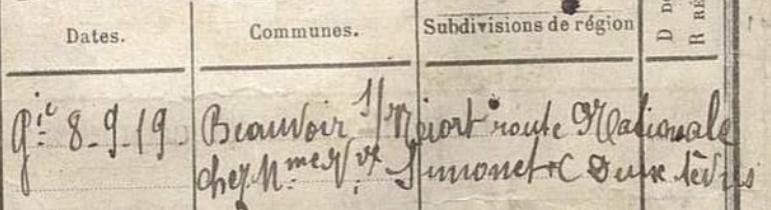 Dates.
Communes.
Subdivisions de région
D
R
DU
RÉ
Gie 8-9-19
Beauvoir s/ Niort route Nationale
chez Mme Vve Simonet Deux Sèvres